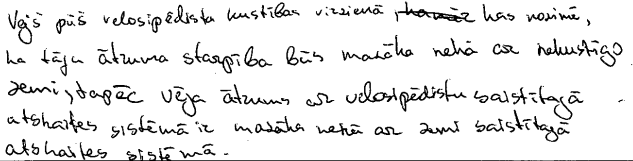 Vējš pūš velosipēdista kustības virzienā, kas nozīmē,
ka tāju ātruma starpība būs mazāka nekā ar nekustīgo
zemi, tapēc vēja ātrums ar velosipēdistu saistītajā
atskaites sistēmā ir mazāks nekā ar zemi saistītajā
atskaites sistēmā.